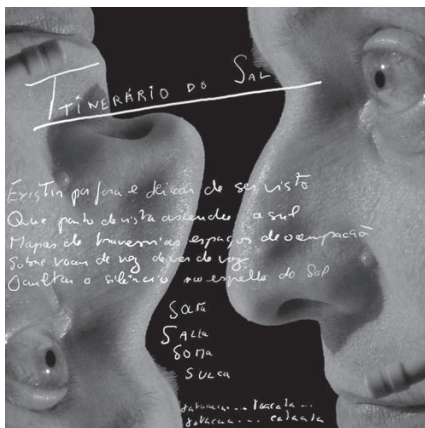 ITINERÁRIO DO SAL
Existir por fora e deixar de ser visto
Que ponto de vista ascende a sul
Mapas de travessias espaços de ocupação
Sobre voar de voz dever de voz
Ocultar o silêncio no espelho do Sal
SALTA
SALTA
SOMA
SULCA